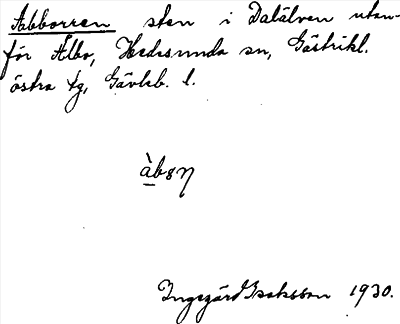 Abborren sten i Dalälven utan-
för Älbo, Hedesunda sn, Gästrikl.
östra tg, Gävleb. l.
àbəη
Ingegärd Isaksson 1930.